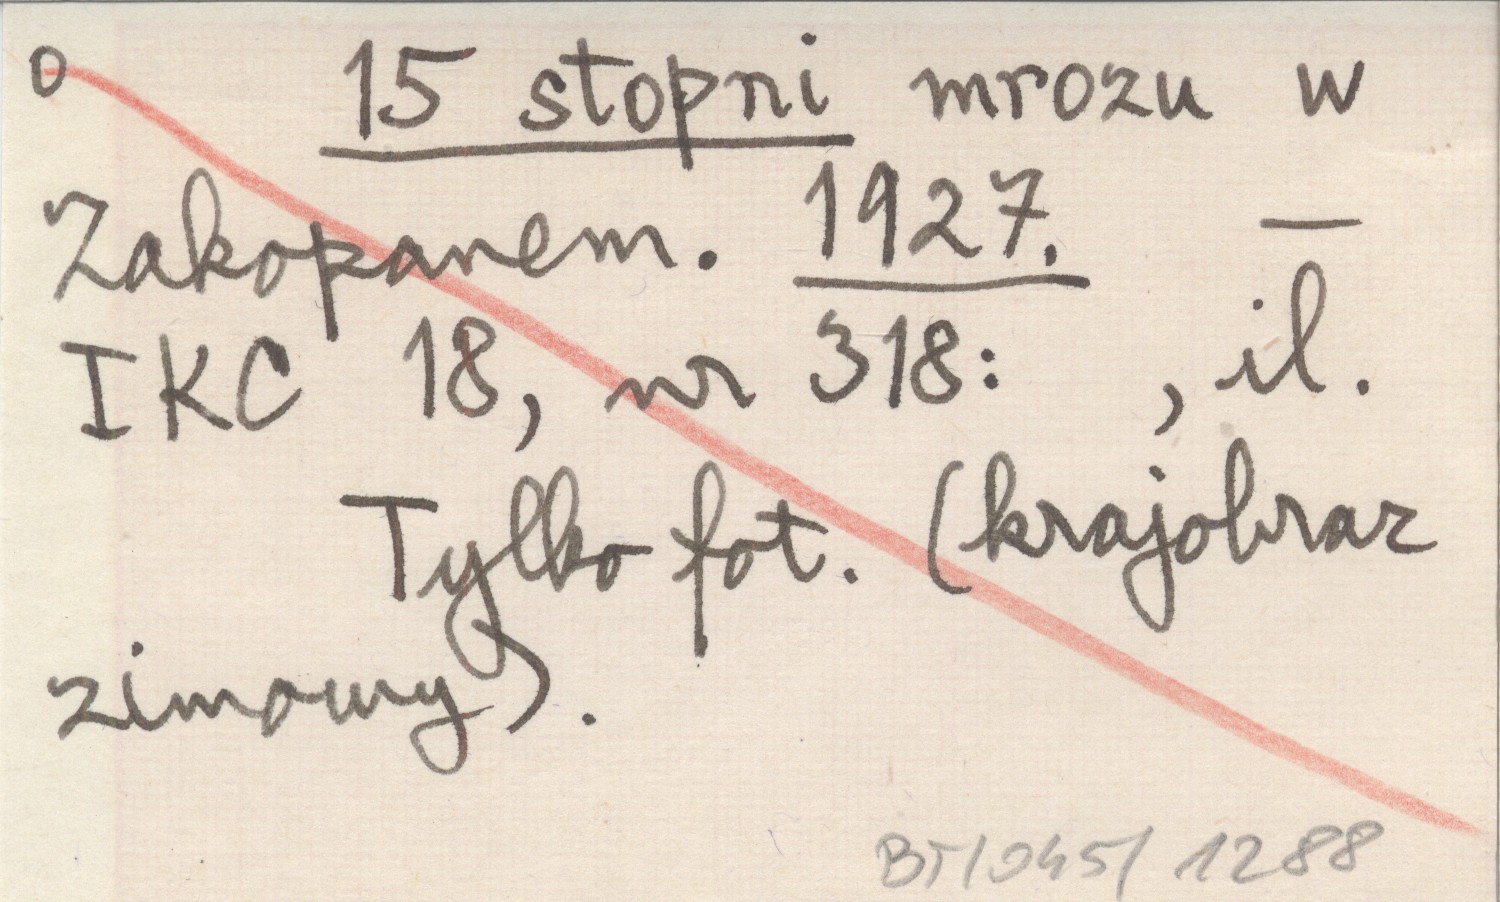 0 15 stopni mrozu w
Zakopanem. 1927. —
IKC 18, nr 318: , il.
Tylko fot. (krajobraz
zimowy).
BT/045/ 1288